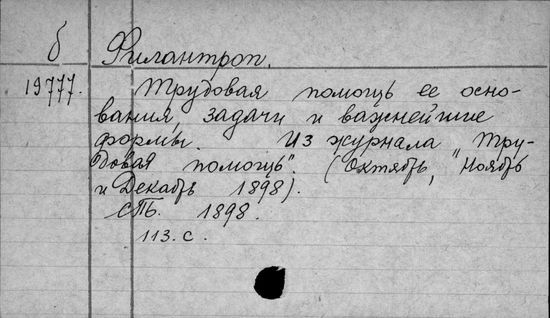 б Филантроп.
19777. Трудовая помощь ее осно-
вания, задачи и важнейшие
формы. Из журнала "Тру-
довая помощь". (Октябрь, Ноябрь
и Декабрь 1898).
СПБ. 1898.
113.с.